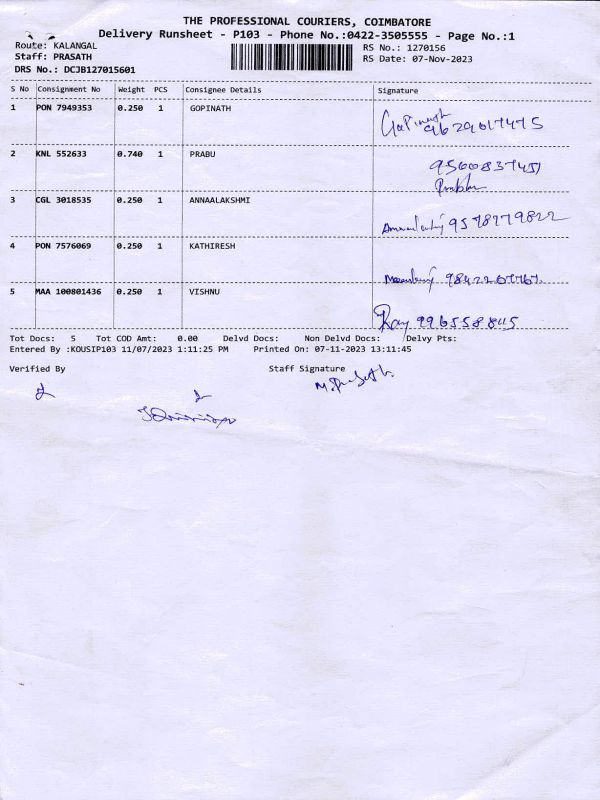 THE PROFESSIONAL COURIERS, COIMBATORE
Delivery Runsheet - P103 - Phone No.:0422-3505555 - Page No.:1
Route: KALANGAL RS No.: 1270156
Staff: PRASATH RS Date: 07-Nov-2023
DRS No.: DCJB127015601
S No Consignment No Weight PCS Consignee Details Signature
1 PON 7949353 0.250 1 GOPINATH Gopinath
9629017475
2 KNL 552633 0.740 1 PRABU
Prabhu
3 CGL 3018535 0.250 1 ANNAALAKSHMI 9578779822
4 PON 7576069 0.250 1 KATHIRESH
5 MAA 100801436 0.250 1 VISHNU
Tot Docs: 5 Tot COD Amt: 0.00 Delvd Docs: Non Delvd Docs: Delvy Pts:
Entered By :KOUSIP103 11/07/2023 1:11:25 PM Printed On: 07-11-2023 13:11:45
Verified By Staff Signature
M. Prasath